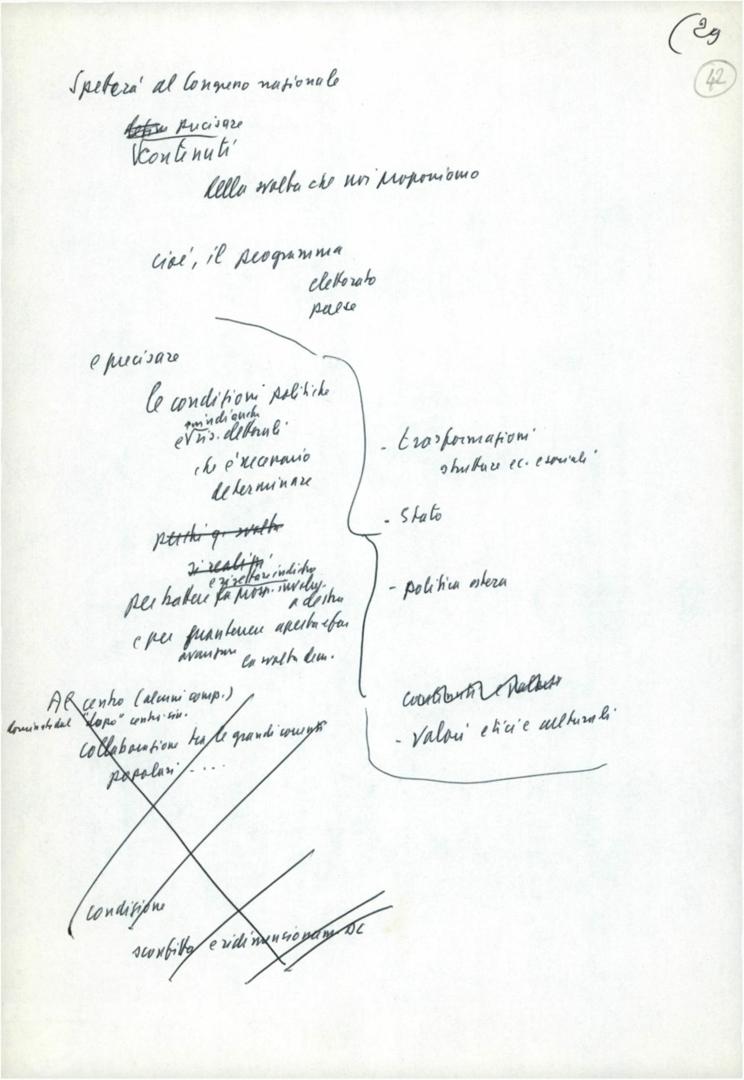 (29
42
Spetterà al Congresso nazionale
precisare
contenuti
della svolta che noi proponiamo
cioè, il programma
elettorato
paese
e precisare
le condizioni politiche
quindi anche
e ris. elettorali
che è necessario
determinare
perché q. svolta
si realizzi
e ricettare indietro
per battere la poss. involuz.
a destra
e per mantenere aperta e far
avanzare la svolta dem.
- trasformazioni
strutture ec. e sociali
- Stato
- politica estera
- Valori etici e culturali
Al centro (alcuni comp.)
dominato dal "dopo" centro sin.
collaborazione tra le grandi correnti
popolari ....
condizione
sconfitta e ridimensionam DC